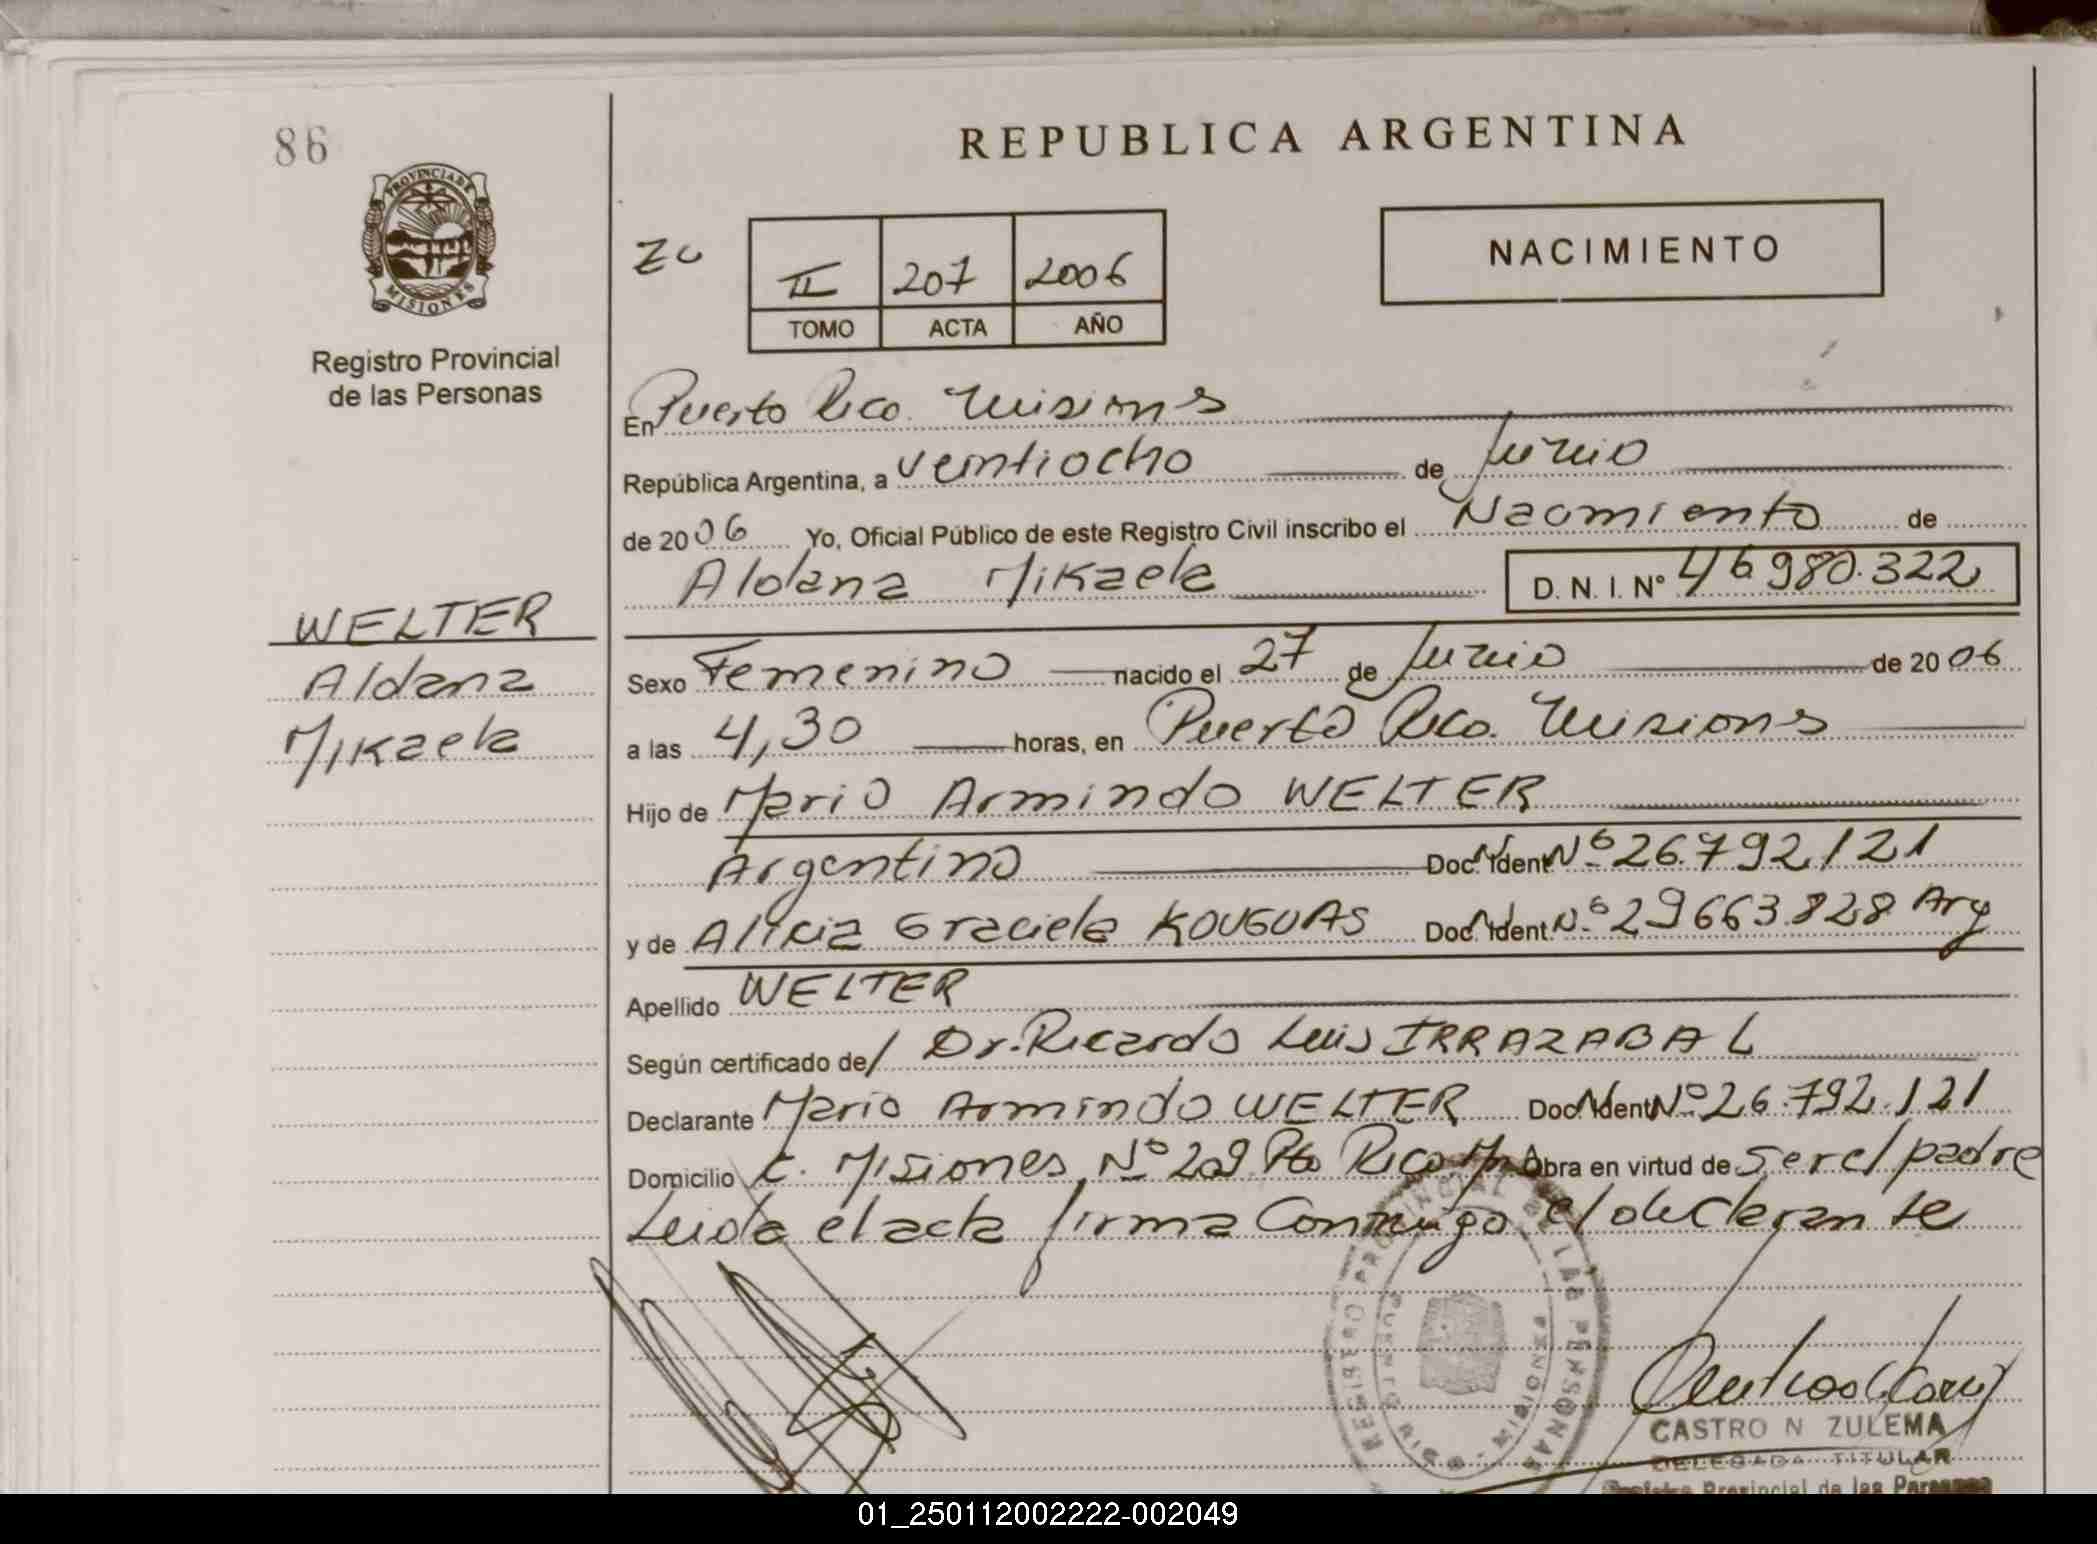 86
PROVINCIA DE
MISIONES
Registro Provincial
de las Personas
REPUBLICA ARGENTINA
II 207 2006
TOMO ACTA AÑO
NACIMIENTO
En Puerto Rico. Misiones
República Argentina, a veintiocho de Junio
de 2006 Yo, Oficial Público de este Registro Civil inscribo el Nacimiento de
Aldana Mikaela D. N. I. N° 46.980.322
WELTER
Aldana
Mikaela
Sexo Femenino nacido el 27 de Junio de 2006
a las 4,30 horas, en Puerto Rico. Misiones
Hijo de Mario Armindo WELTER
Argentino Doc. Ident. Nº 26.792.121
y de Alicia Graciela KOUGUAS Doc. Ident. Nº 29663.828 Arg
Apellido WELTER
Según certificado de/ Dr. Ricardo Luis IRRAZABAL
Declarante Mario Armindo WELTER Doc. Ident. Nº 26.792.121
Domicilio C. Misiones Nº 209 Pto Rico Mnes Obra en virtud de ser el padre
Leida el acta firma Conmigo el declarante
REGISTRO PROVINCIAL DE LAS PERSONAS
PUERTO RICO
CASTRO N ZULEMA
DELEGADA TITULAR
Registro Provincial de las Personas
01_250112002222-002049